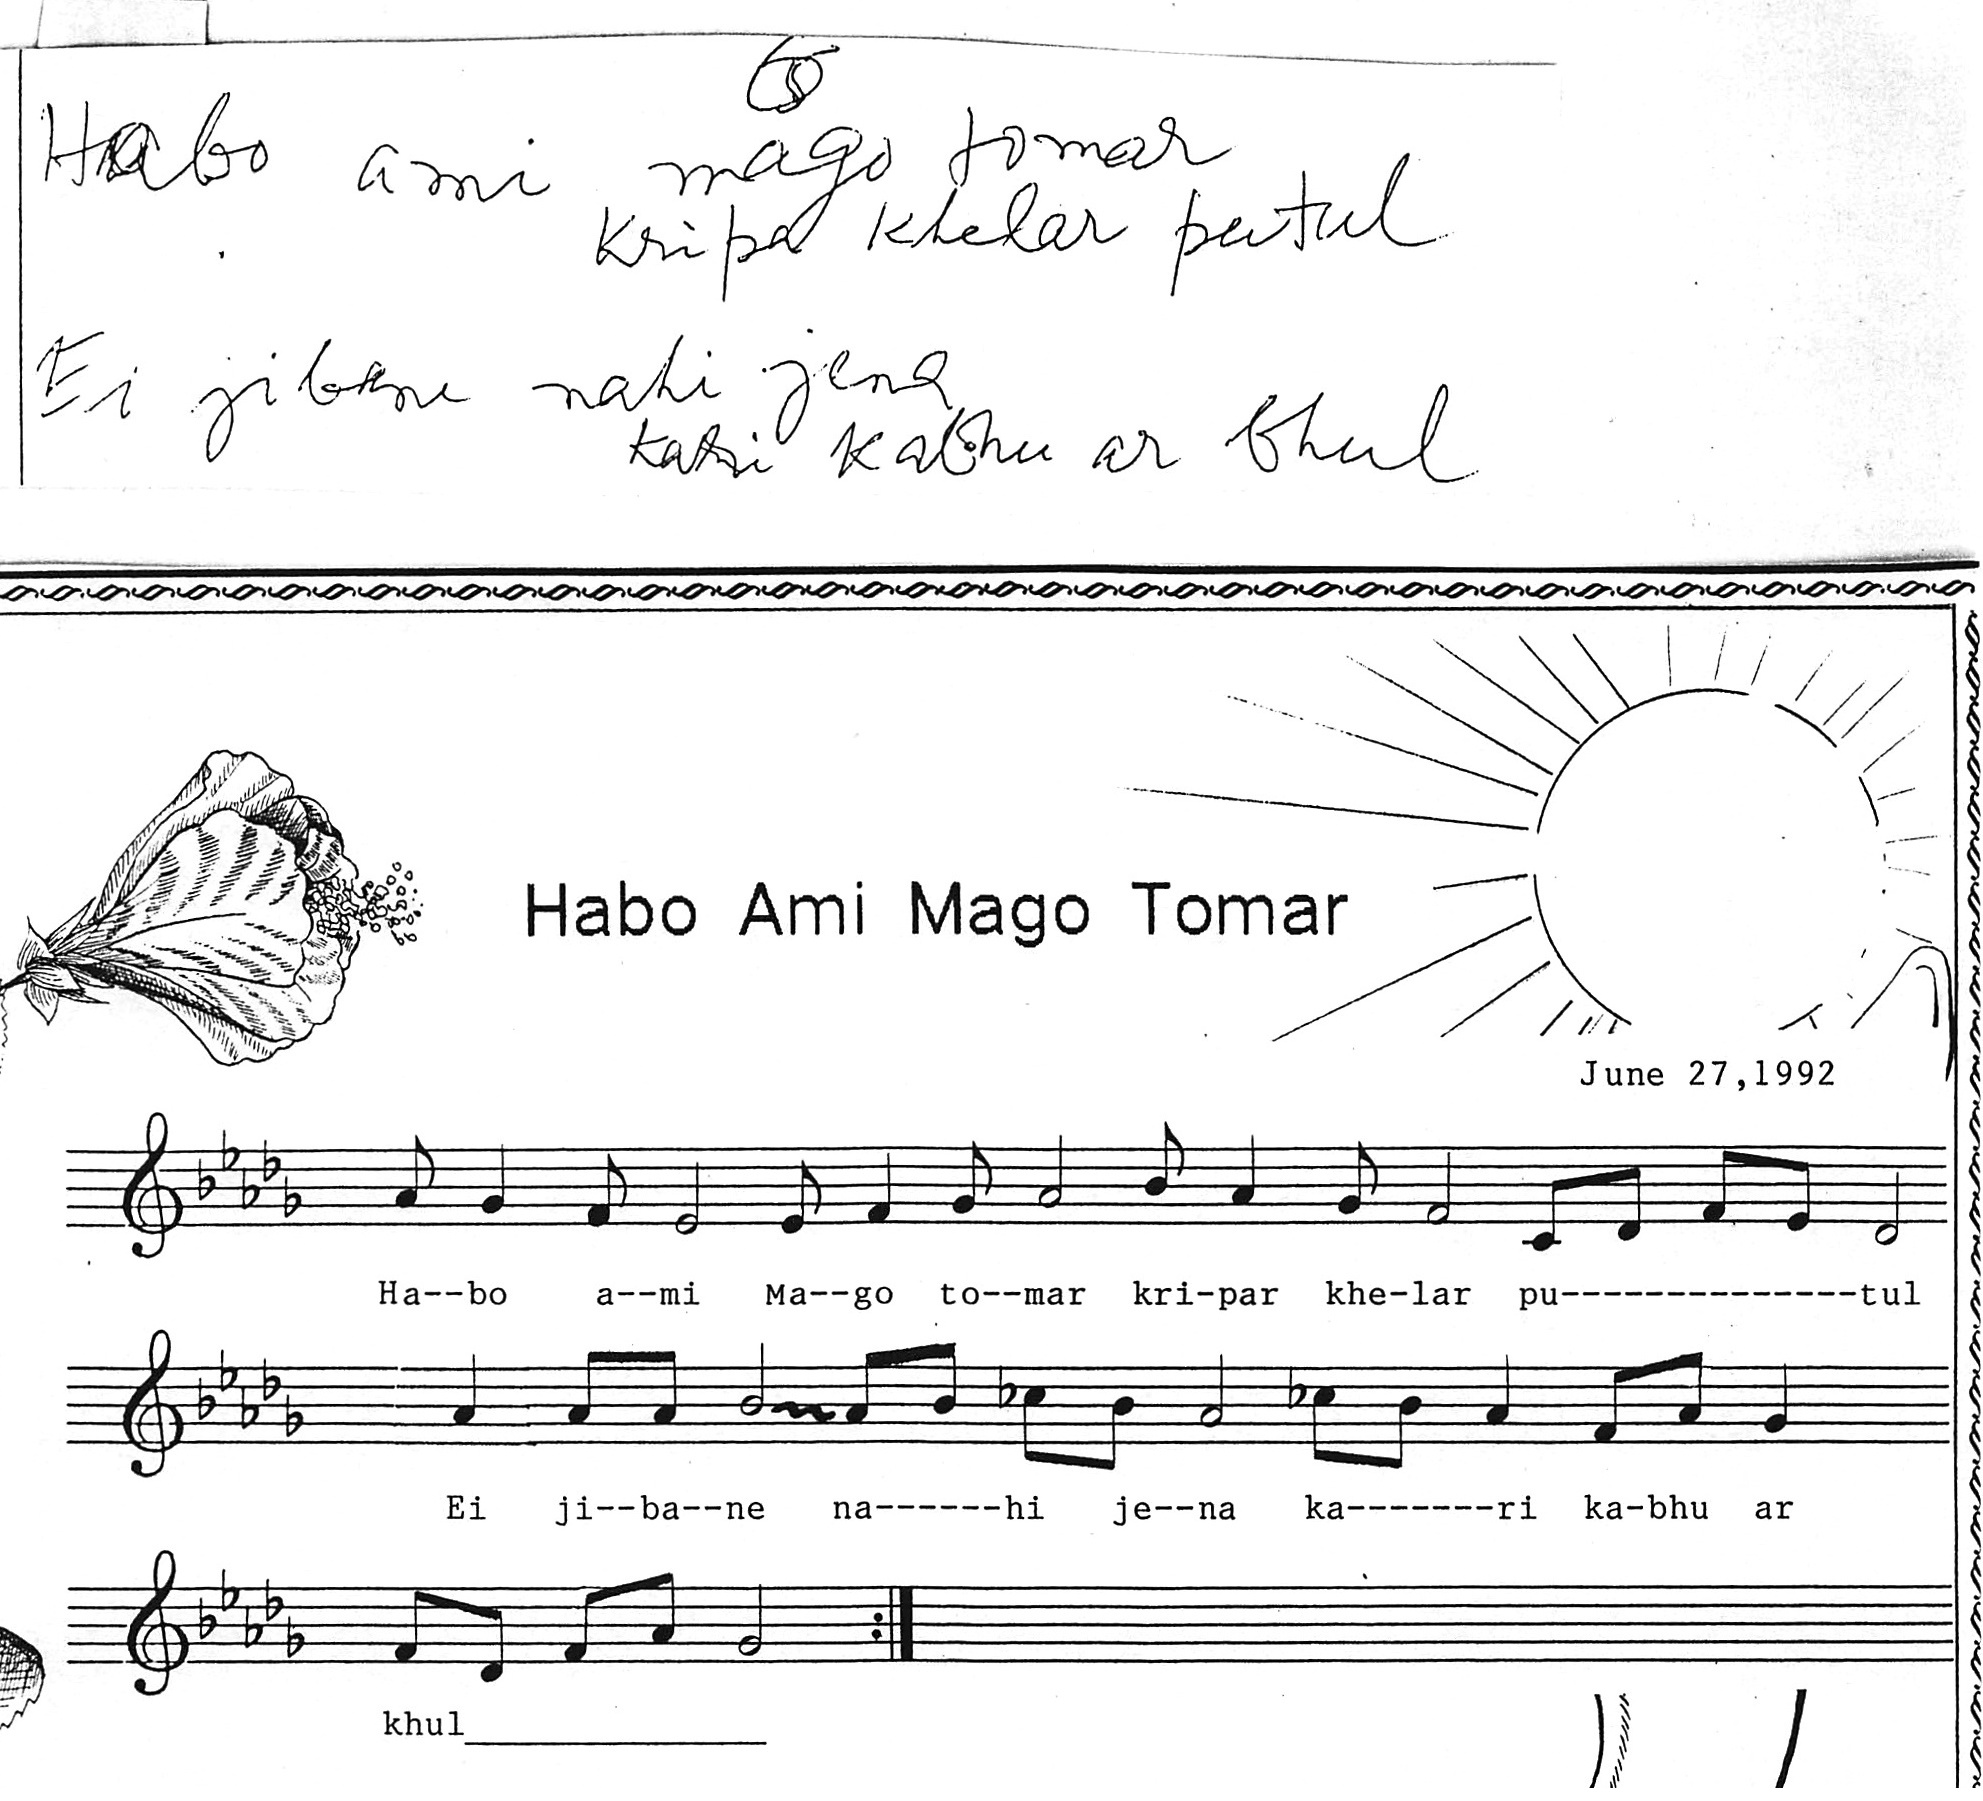 Habo ami mago tomar
kripa khelar putul
Ei jibane nahi jena
kari kabhu ar bhul
Habo Ami Mago Tomar
June 27,1992
Ha--bo a--mi Ma--go to--mar kri-par khe-lar pu--------------tul
Ei ji--ba--ne na------hi je--na ka-------ri ka-bhu ar
khul